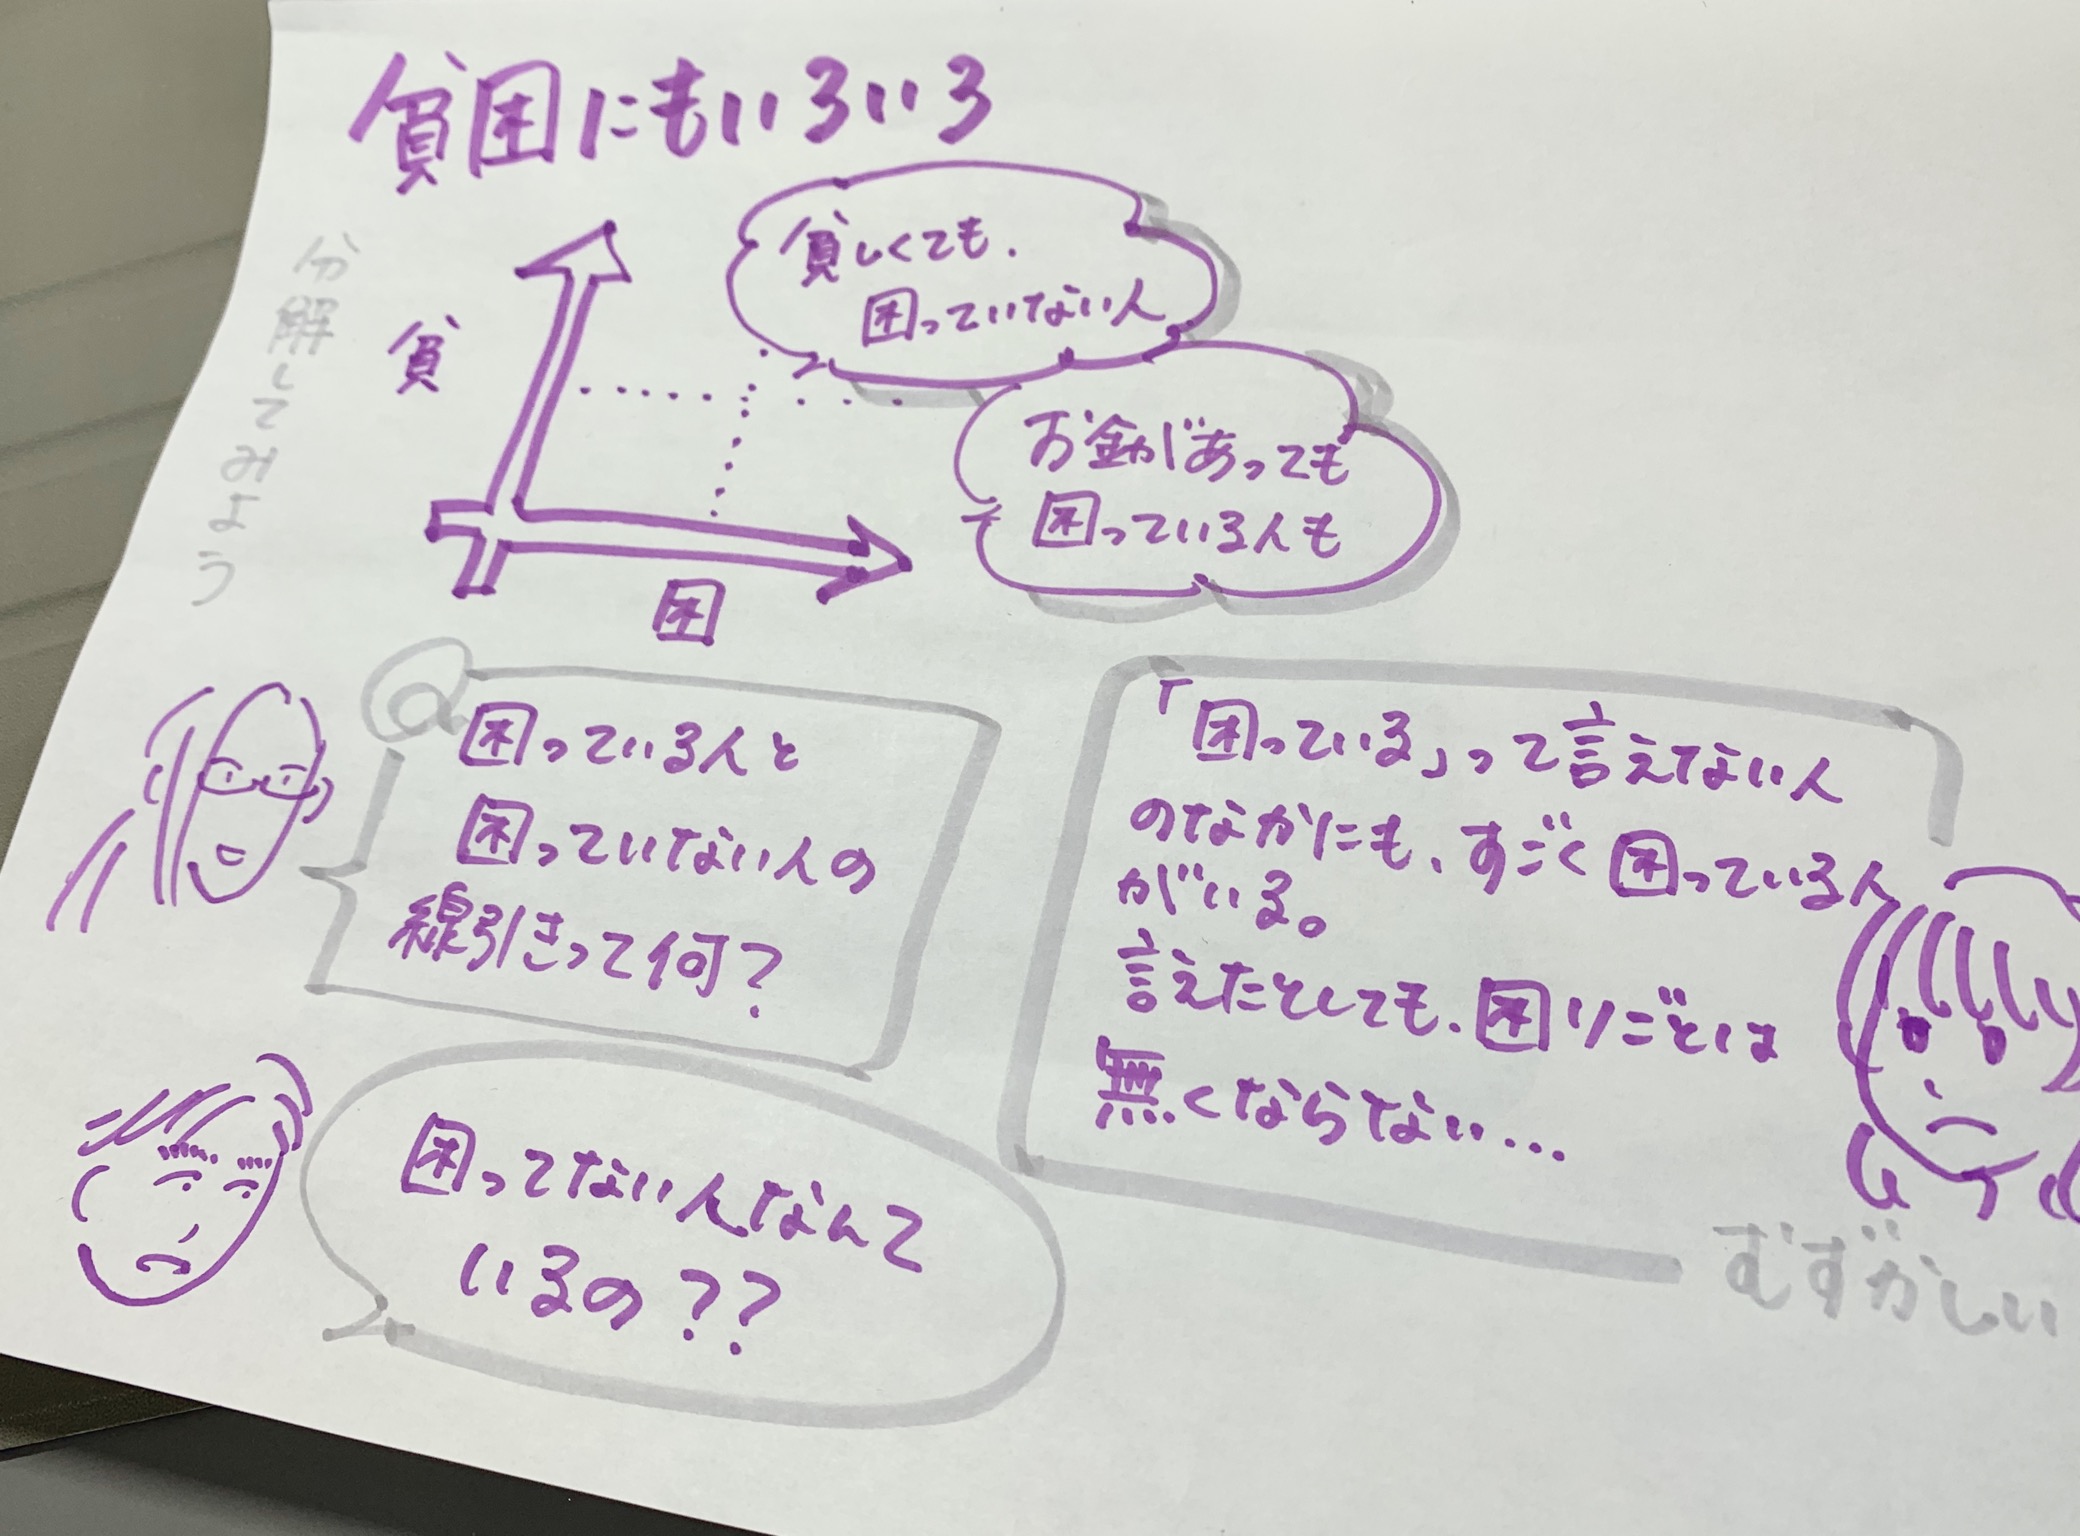 貧困にもいろいろ
分解してみよう
貧
困
貧しくても.
困っていない人
お金があっても
困っている人も
Q
困っている人と
困っていない人の
線引きって何?
「困っている」って言えない人
のなかにも、すごく困っている人
がいる。
言えたとしても.困りごとは
無くならない...
困ってない人なんて
いるの??
むずかしい